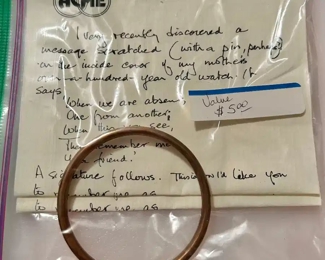 ACME
I very recently discovered a
message scratched (with a pin, perhaps)
on the inside cover of my mother's
over-a-hundred-year old watch. It
says
"When we are absent,
One from another,
When this you see,
remember me
a friend."
A signature follows. This I would like you
to remember me as
to remember me as
Value
$5.00